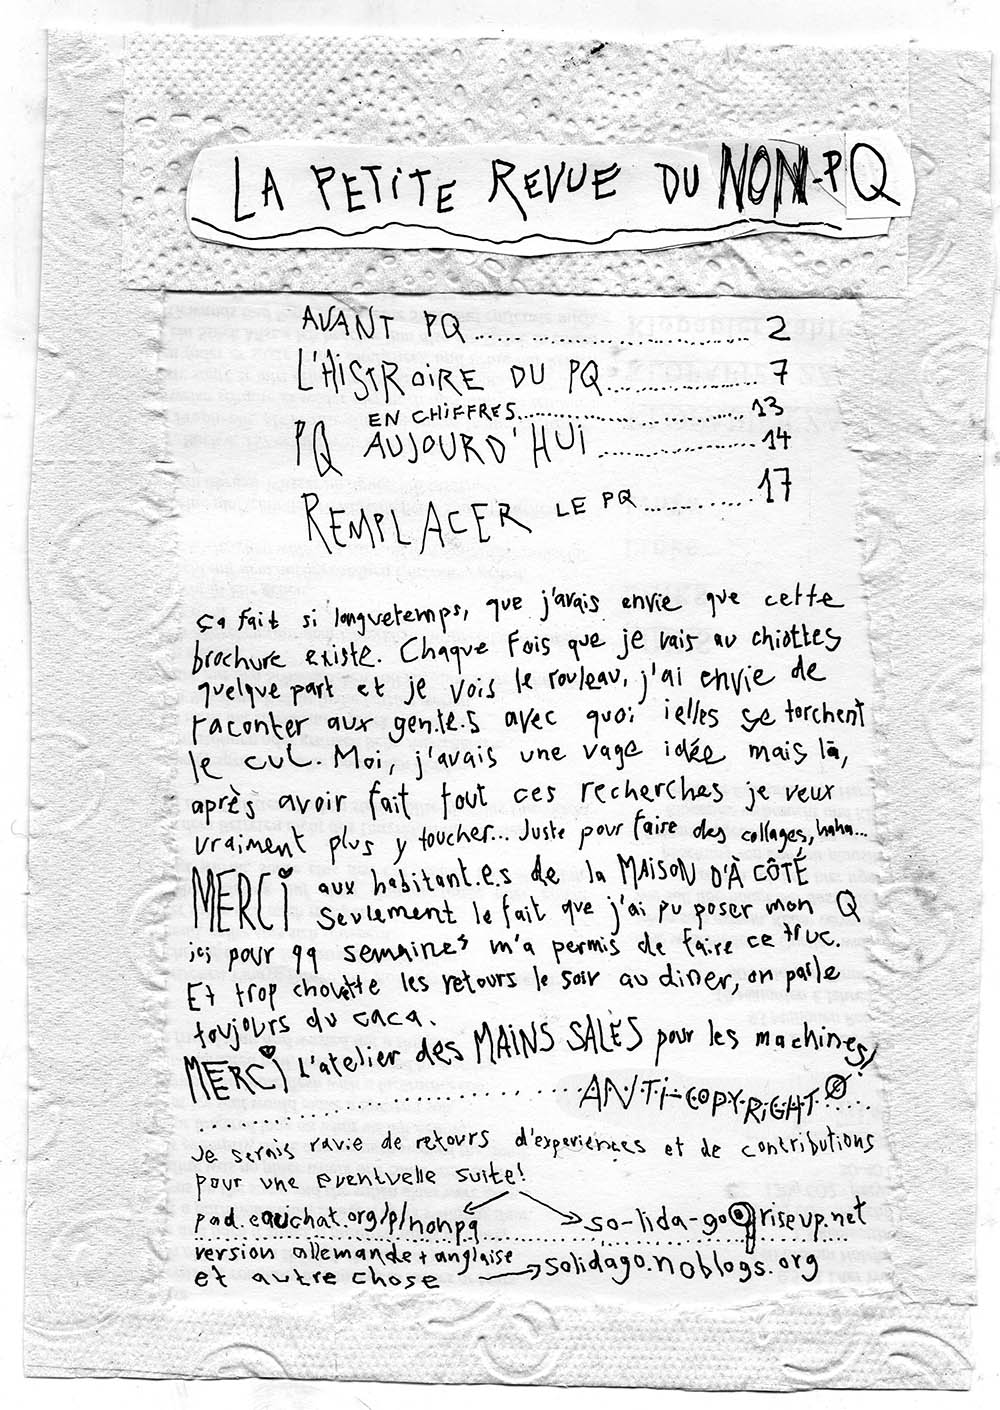 LA PETITE REVUE DU NON-PQ
AVANT PQ .................................. 2
L'HISTROIRE DU PQ .................... 7
EN CHIFFRES .............................. 13
PQ AUJOURD'HUI ..................... 14
REMPLACER LE PQ ............ 17
ça fait si longuetemps, que j'avais envie que cette
brochure existe. Chaque Fois que je vais au chiottes
quelque part et je vois le rouleau, j'ai envie de
raconter aux gen.te.s avec quoi ielles se torchent
le cul. Moi, j'avais une vage idée mais là,
après avoir fait tout ces recherches je veux
vraiment plus y toucher... Juste pour faire des collages, haha...
MERCi aux habitant.e.s de la MAISON D'À CÔTÉ
Seulement le fait que j'ai pu poser mon Q
ici pour qq semaines m'a permis de faire ce truc.
Et trop chouette les retours le soir au diner, on parle
toujours du caca.
MERCi L'atelier des MAINS SALES pour les machines,
ANTi-COPYRiGHT
Je serais ravie de retours d'experiences et de contributions
pour une eventuelle suite!
pad.eauchat.org/p/nonpq
so-lida-go@riseup.net
version allemande + anglaise
et autre chose
solidago.noblogs.org